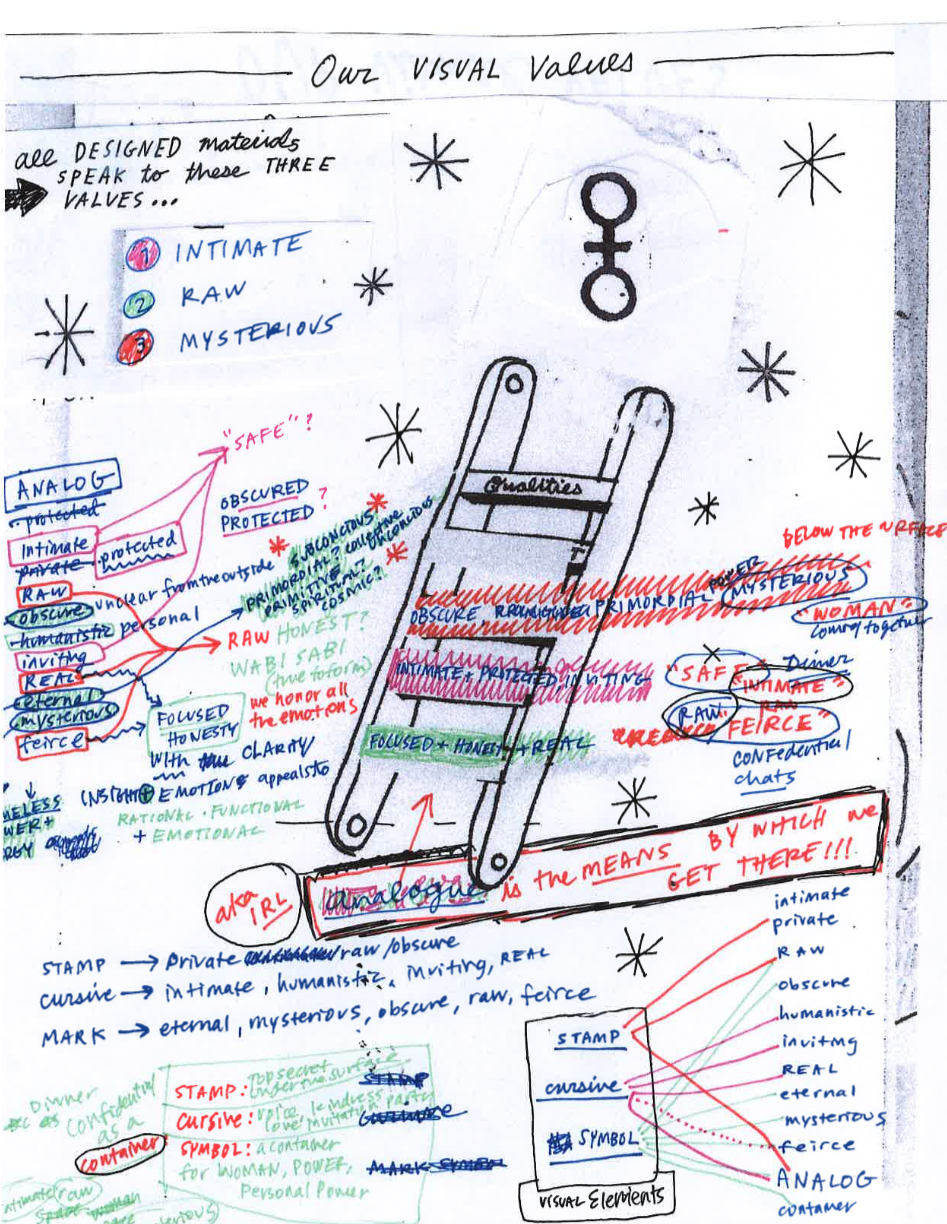 Our VISUAL Values
all DESIGNED materials
SPEAK to these THREE
VALUES...
1 INTIMATE
2 RAW
3 MYSTERIOUS
"SAFE"?
ANALOG
protected
Intimate
private
protected
RAW
obscure unclear from the outside
humanistic personal
inviting
REAL
eternal
mysterious
feirce
OBSCURED
PROTECTED?
SUBCONCIOUS
PRIMORDIAL? collective
PRIMITIVE? UNCONCIOUS
SPIRITUAL?
COSMIC?
RAW HONEST?
WABI SABI
(true to form)
we honor all
the emotions
FOCUSED
HONESTY
WITH CLARITY
INSIGHT + EMOTIONS appeals to
RATIONAL · FUNCTIONAL
+ EMOTIONAL
Qualities
BELOW THE SURFACE
POWER
OBSCURE PRIMORDIAL MYSTERIOUS
"WOMAN"
coming together
INTIMATE + PROTECTED INVITING
"SAFE" Dinner
"INTIMATE"
RAW
RAW "FEIRCE"
FOCUSED + HONEST + REAL
CONFEDENTIAL
chats
aka
IRL
analogue is the MEANS BY WHICH we
GET THERE!!!
STAMP → Private /raw/obscure
cursive → intimate, humanistic, inviting, REAL
MARK → eternal, mysterious, obscure, raw, feirce
Dinner
as confidential
as a
container
STAMP: TOP SECRET
under the surface
STAMP
cursive: voice, kindness
love, invitation, party
SYMBOL: a container
for WOMAN, POWER,
Personal Power
MARK SYMBOL
STAMP
cursive
SYMBOL
VISUAL Elements
intimate
private
RAW
obscure
humanistic
inviting
REAL
eternal
mysterious
feirce
ANALOG
container
intimate (raw)